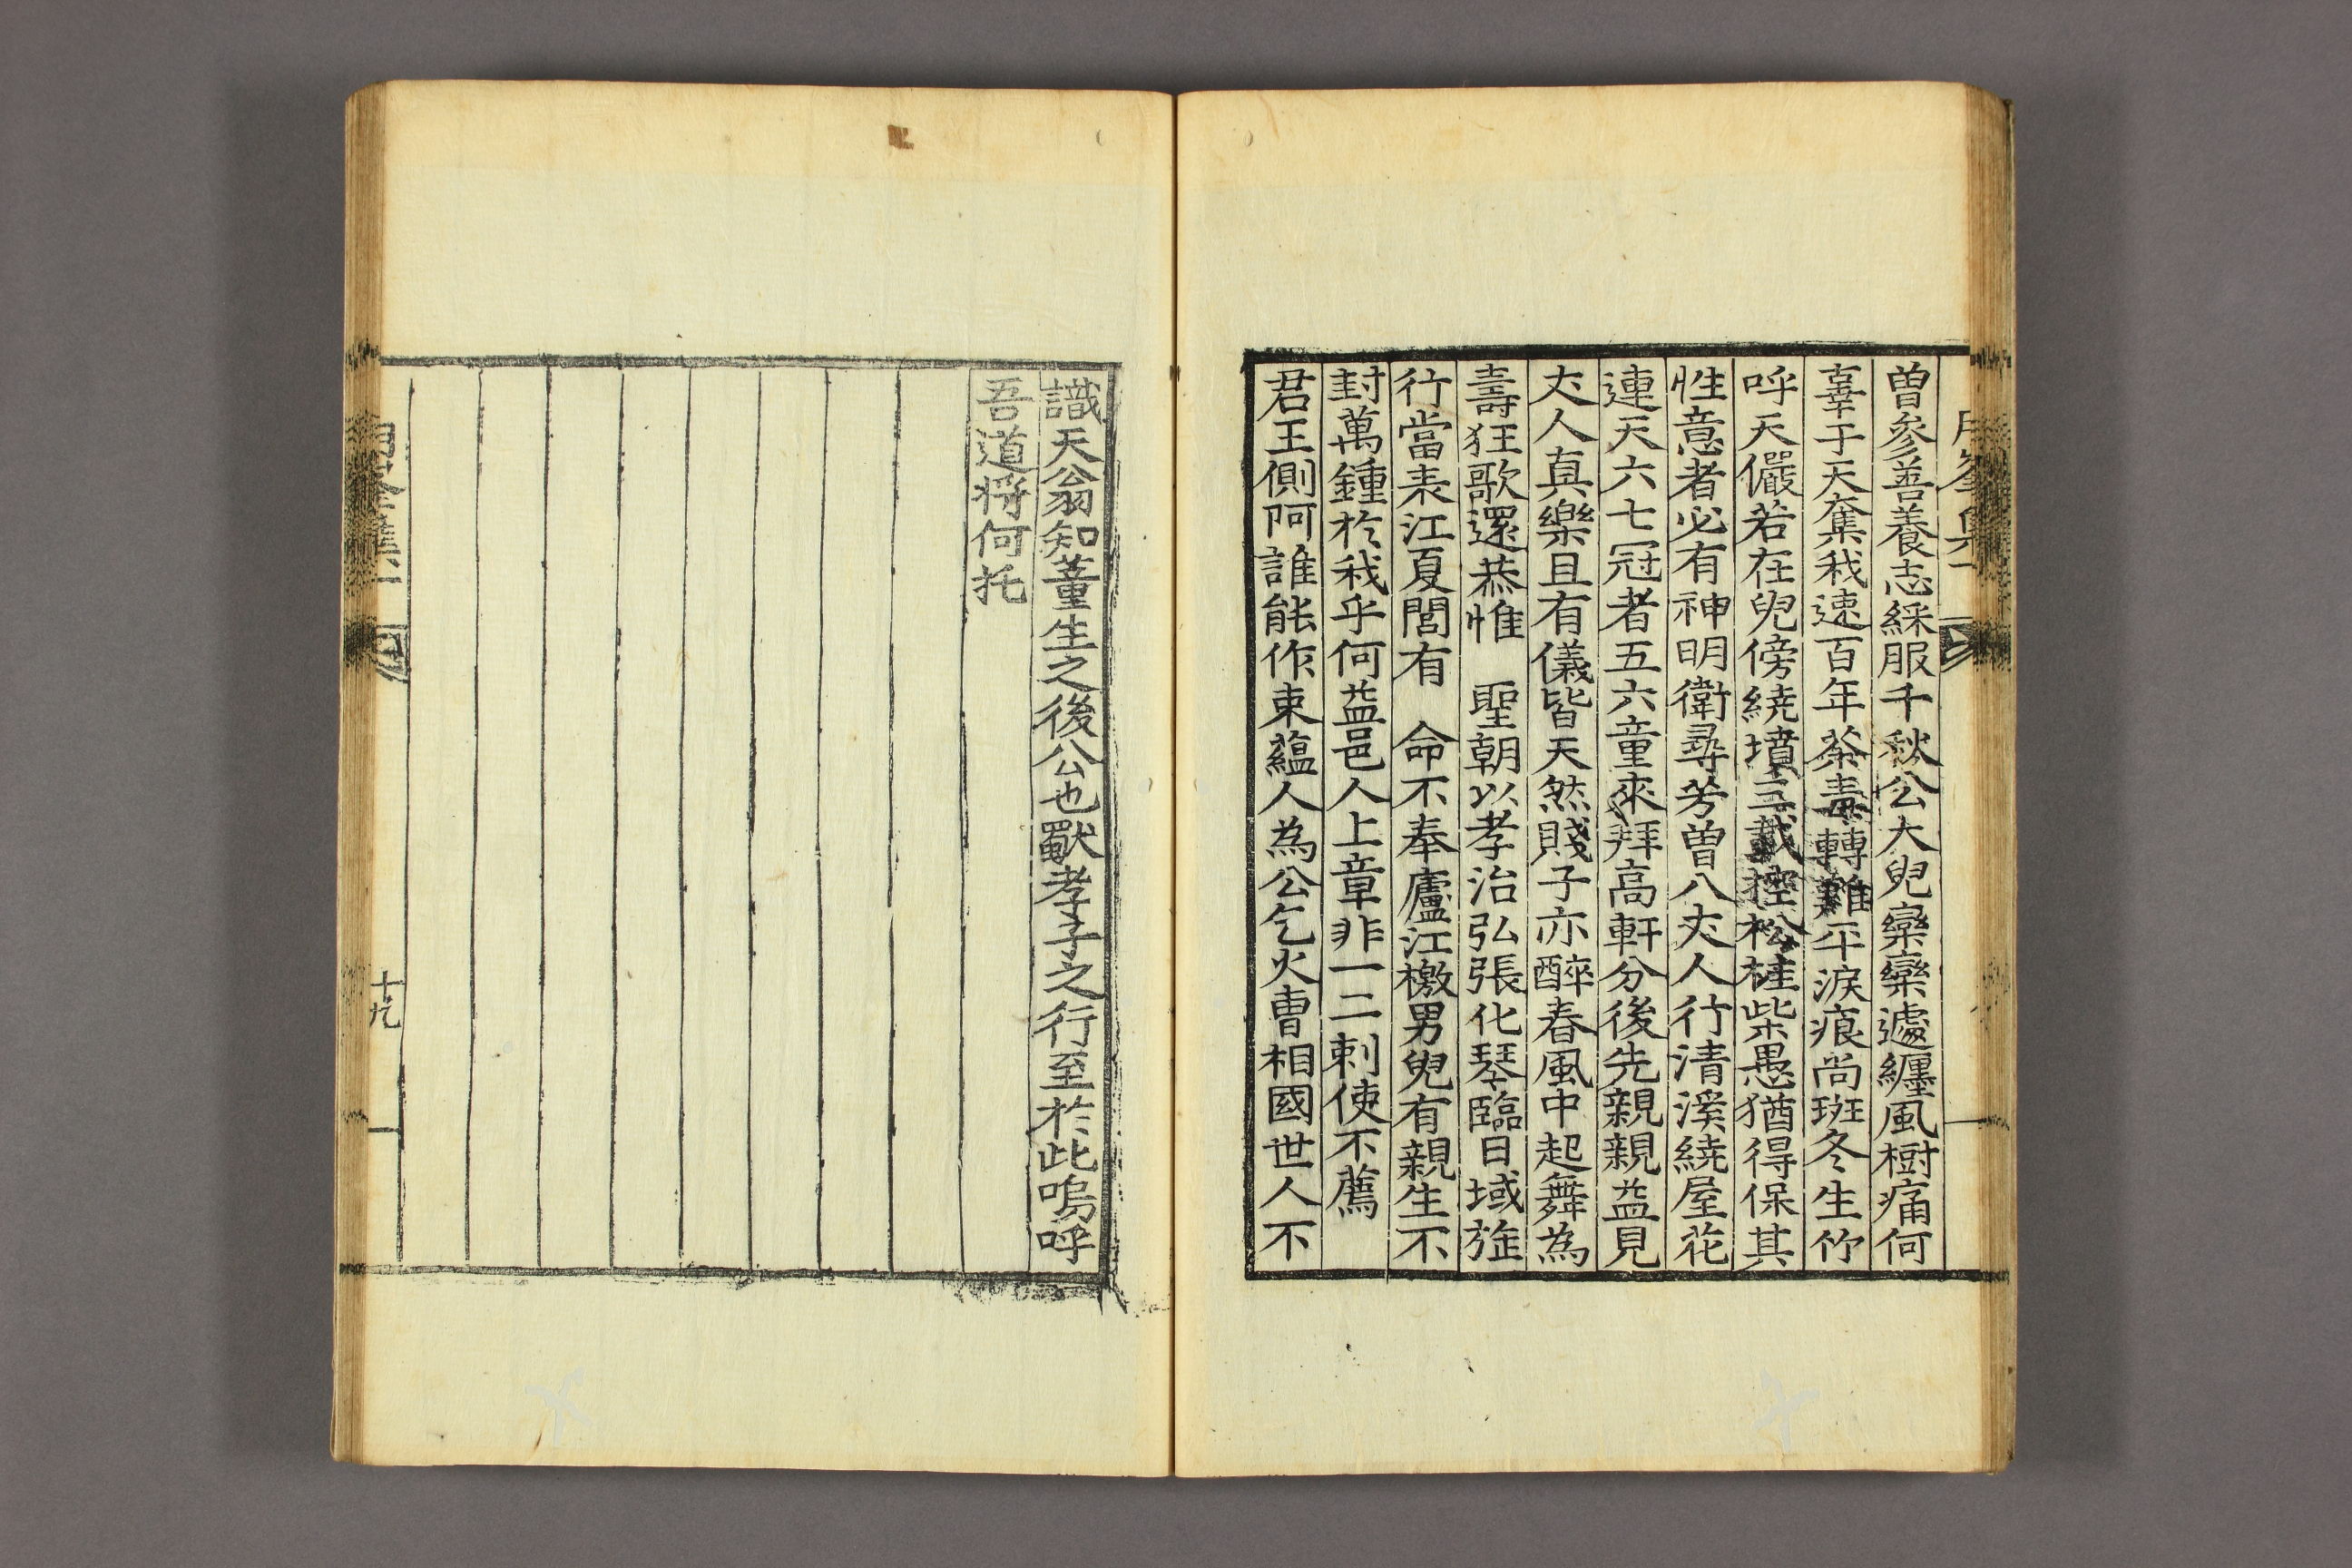 曽參善養志綵服千秋公大兒欒欒遽纏風樹痛何
辜于天奪我速百年荼毒轉難平淚痕尚斑冬生竹
呼天儼若在兒傍繞墳三載攀松桂柴愚猶得保其
性意者必有神明衛尋芳曽入丈人行清溪繞屋花
連天六七冠者五六童來拜高軒分後先親親益見
丈人真樂且有儀皆天然賤子亦醉春風中起舞為
壽狂歌還恭惟 聖朝以孝治弘張化琴臨日域旌
行當表江夏閭有 命不奉廬江檄男兒有親生不
封萬鍾於我乎何益邑人上章非一二刺使不薦
君王側阿誰能作束蘊人為公乞火曺相國世人不
識天翁知董生之後公也歟孝子之行至於此嗚呼
吾道将何托
十九